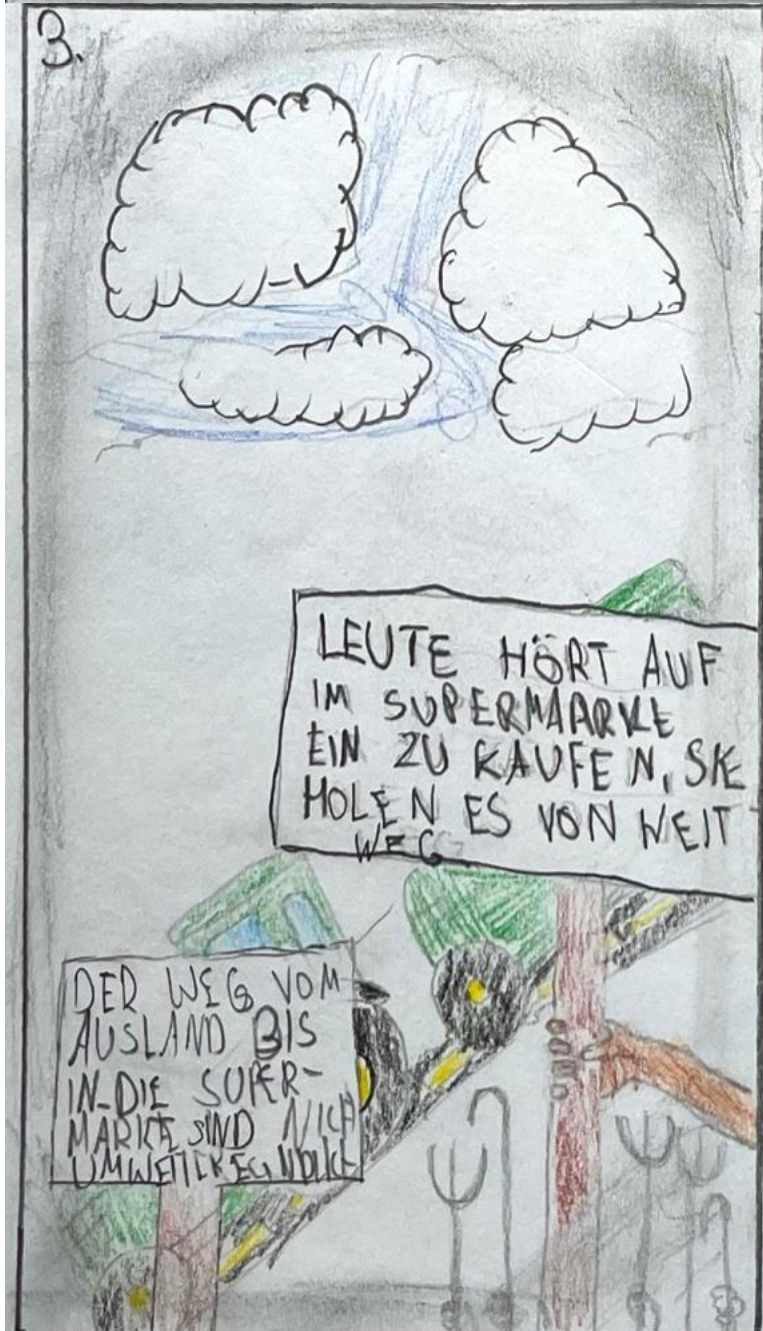 3.
LEUTE HÖRT AUF
IM SUPERMAARKE
EIN ZU KAUFEN, SIE
HOLEN ES VON WEIT
WEG
DER WEG VOM
AUSLAND BIS
IN-DIE SUPER-
MARKTE SIND NICH